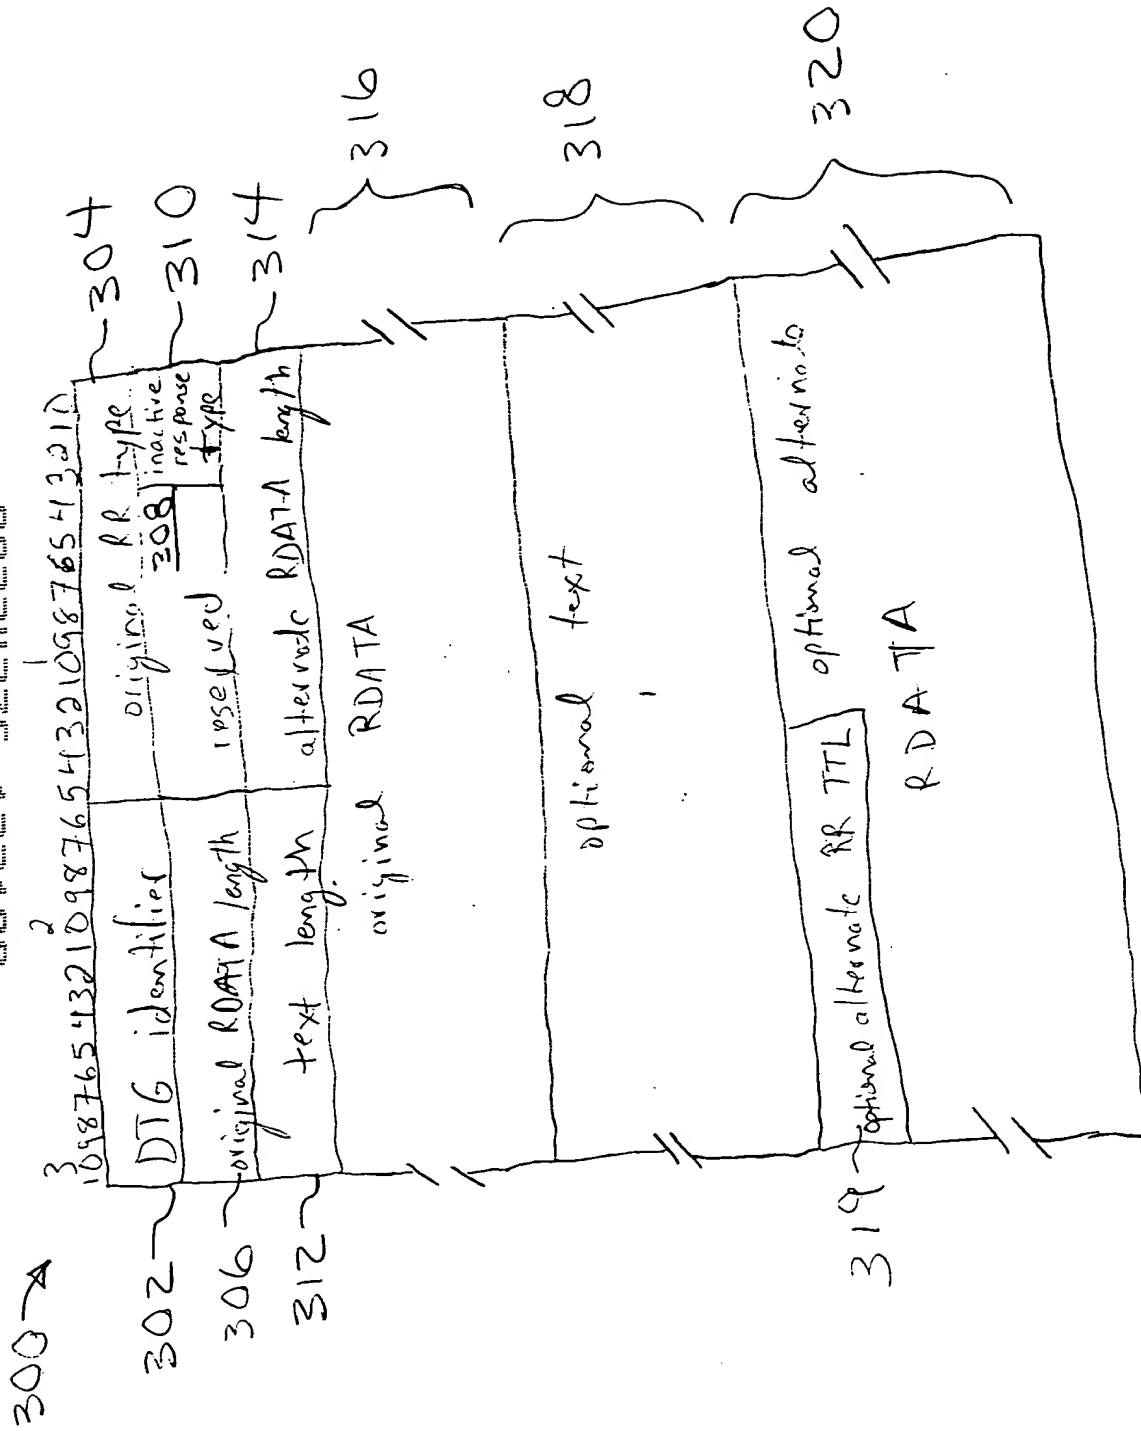 300
3 2 1
10987654321098765432109876543210
302 DTG identifier original RR type 304
306 original RDATA length reserved 308 inactive response type 310
312 text length alternate RDATA length 314
original RDATA 316
optional text 318
319 optional alternate RR TTL optional alternate
RDATA 320